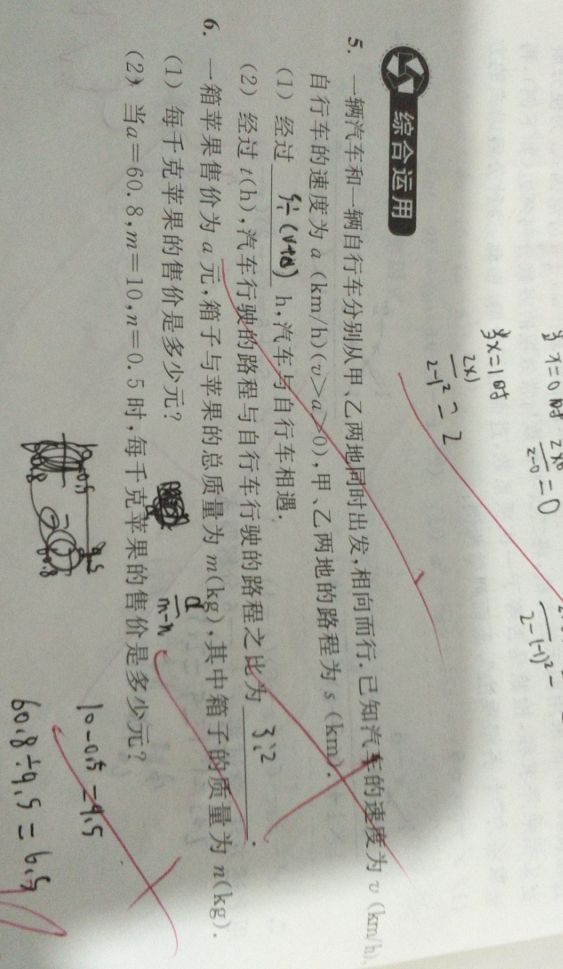 当x=0时 2×0/2-0=0
当x=1时 2×1/2-1²=2
2-(-1)²
综合运用
5. 一辆汽车和一辆自行车分别从甲、乙两地同时出发,相向而行.已知汽车的速度为 v (km/h),
自行车的速度为 a (km/h)(v>a>0),甲、乙两地的路程为 s (km).
(1) 经过 s÷(v+a) h,汽车与自行车相遇.
(2) 经过 t(h),汽车行驶的路程与自行车行驶的路程之比为 3:2 .
6. 一箱苹果售价为 a 元,箱子与苹果的总质量为 m(kg),其中箱子的质量为 n(kg).
(1) 每千克苹果的售价是多少元? a/m-n
(2) 当a=60.8,m=10,n=0.5时,每千克苹果的售价是多少元?
10-0.5=9.5
60.8÷9.5=6.5